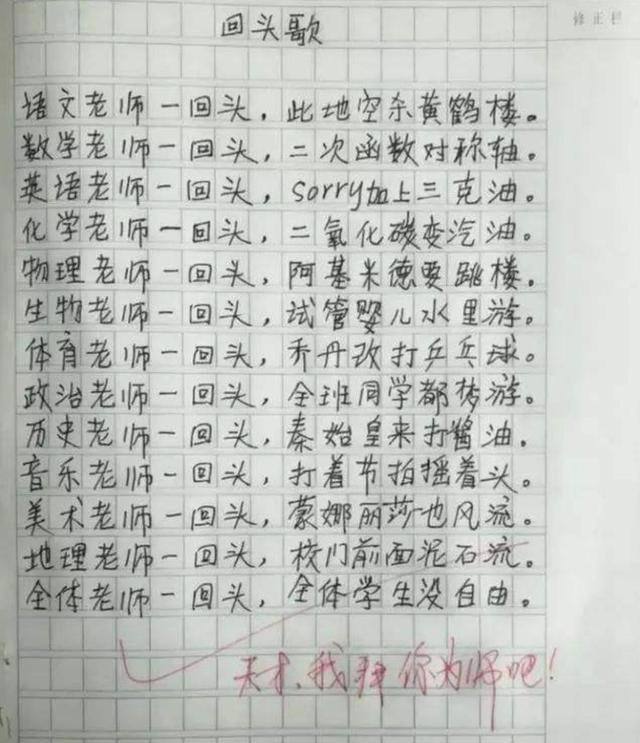 修正栏
回头歌
语文老师一回头，此地空余黄鹤楼。
数学老师一回头，二次函数对称轴。
英语老师一回头，sorry加上三克油。
化学老师一回头，二氧化碳变汽油。
物理老师一回头，阿基米德要跳楼。
生物老师一回头，试管婴儿水里游。
体育老师一回头，乔丹改打乒乓球。
政治老师一回头，全班同学都梦游。
历史老师一回头，秦始皇来打酱油。
音乐老师一回头，打着节拍摇着头。
美术老师一回头，蒙娜丽莎也风流。
地理老师一回头，校门前面泥石流。
全体老师一回头，全体学生没自由。
天才，我拜你为师吧！